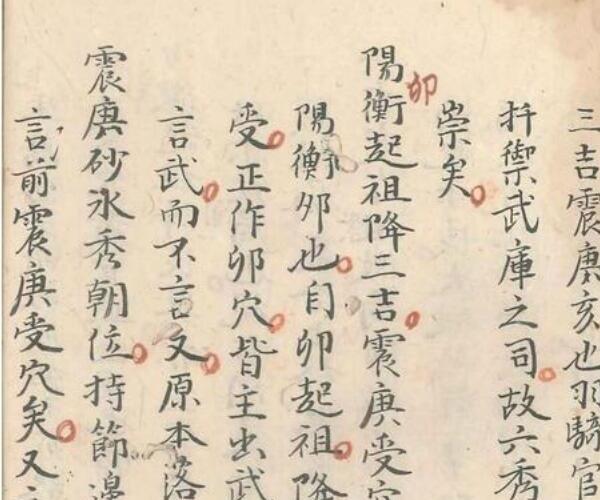 三吉震庚亥也羽騎官
扞禦武庫之司故六秀
崇矣
卯
陽衡起祖降三吉震庚受穴
陽衡夘也自卯起祖降
受正作卯穴皆主出武
言武而不言文原本落
震庚砂水秀朝位持節邊
言前震庚受穴矣又